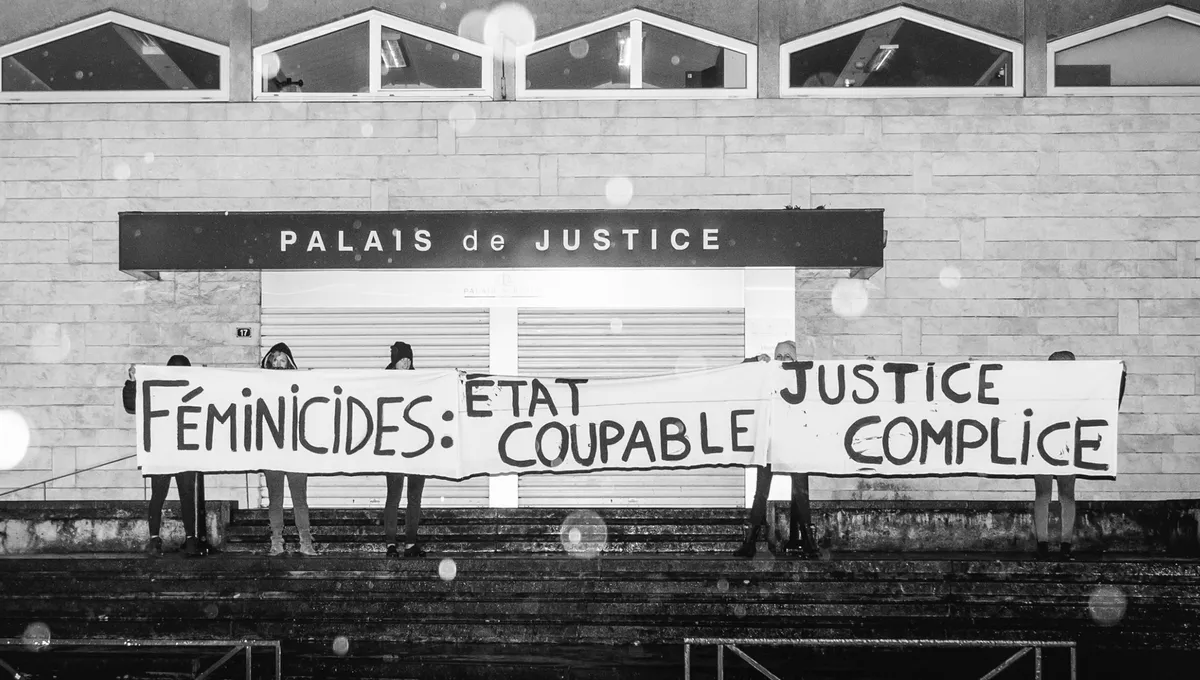 PALAIS de JUSTICE
17
FÉMINICIDES:
ÉTAT
COUPABLE
JUSTICE
COMPLICE